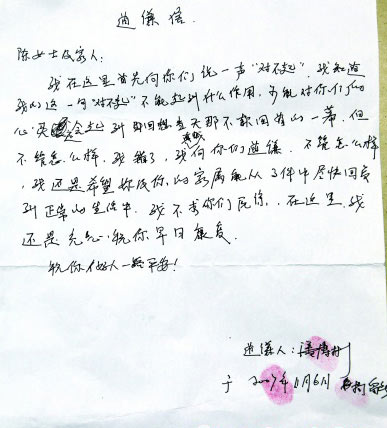 道歉信
陈女士及家人：
我在这里首先向你们说一声“对不起”，我知道
我的这一句“对不起”不能起到什么作用，可能对你们的
心灵会起到即回想当天那不敢回首的一幕，但
不管怎么样，我错了，我向你们道歉，不管怎么样
，我还是希望你及你的家属能从这件中尽快回复
到正常的生活中，我不求你们原谅，在这里，我
还是先祝你早日康复。
祝你们好人一生平安！
道歉人：
于 2007年11月6日